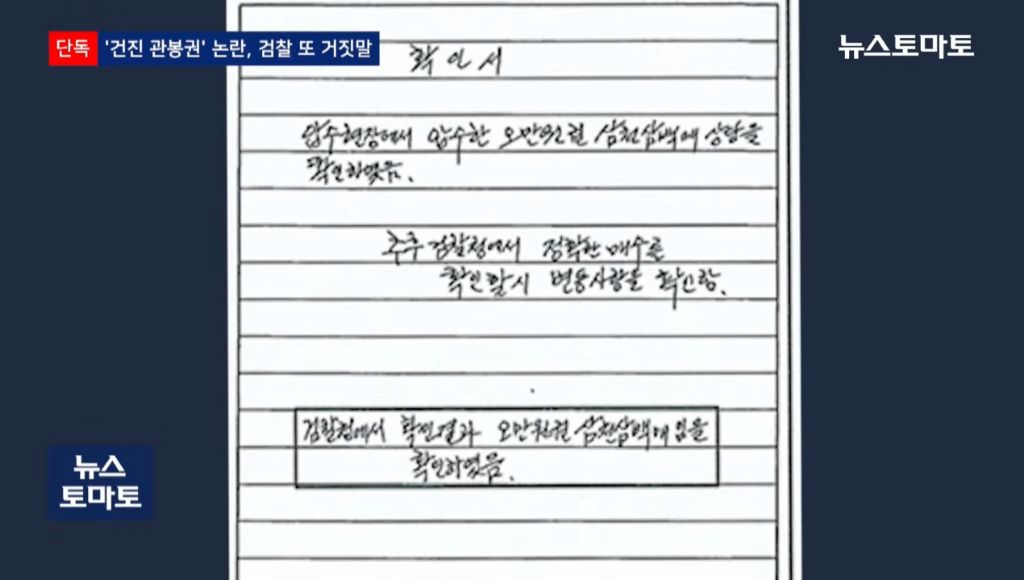 단독 '건진 관봉권' 논란, 검찰 또 거짓말
뉴스토마토
확인서
압수현장에서 압수한 오만원권 삼천삼백매 상당을
확인하였음.
추후 검찰청에서 정확한 매수를
확인할시 변동사항을 확인함.
검찰청에서 확인결과 오만원권 삼천삼백매 임을
확인하였음.
뉴스
토마토